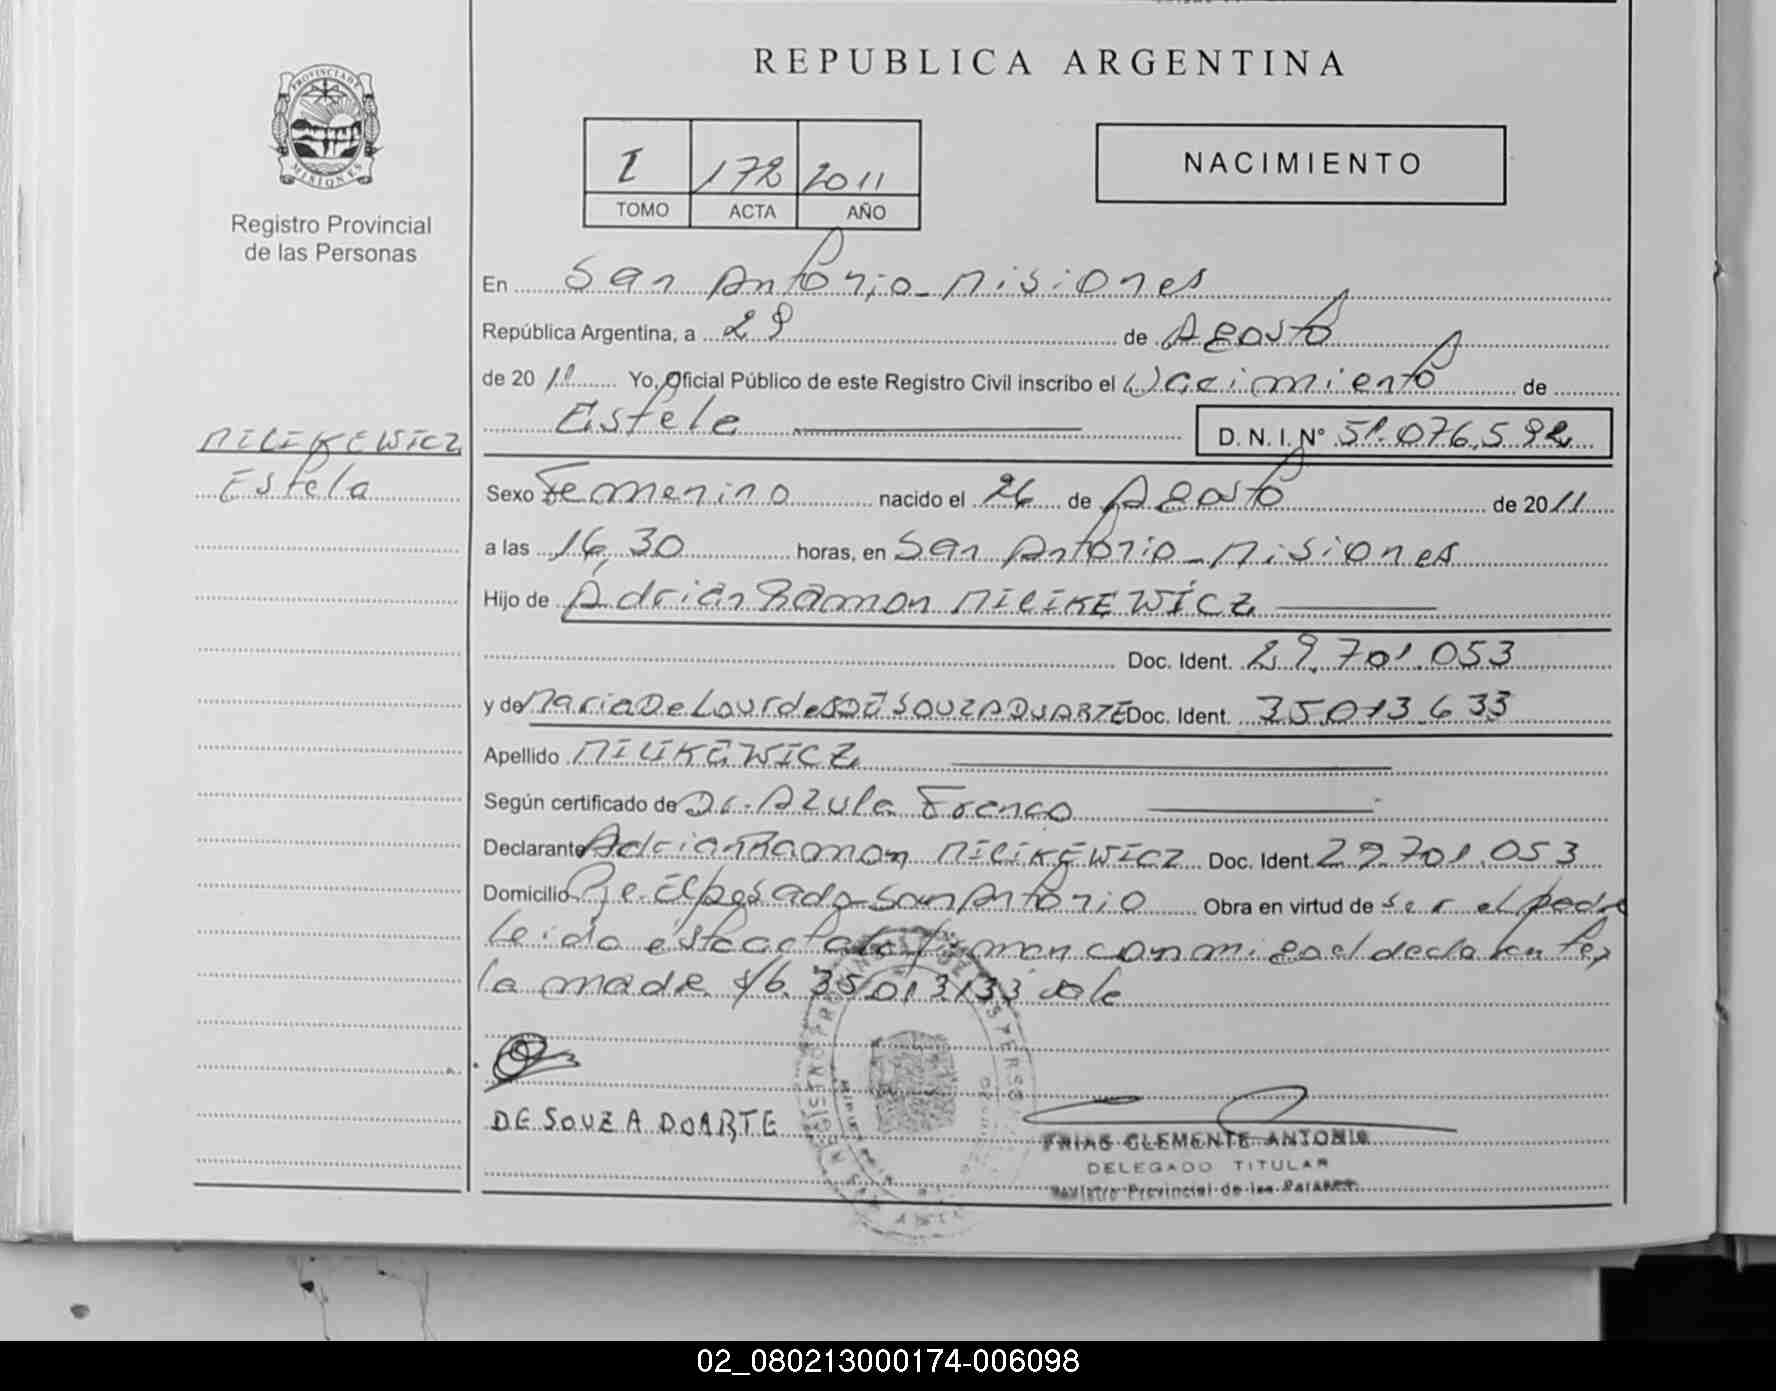 REPUBLICA ARGENTINA
PROVINCIA DE
MISIONES
Registro Provincial
de las Personas
I 172 2011
TOMO ACTA AÑO
NACIMIENTO
En San Antonio - Misiones
República Argentina, a 29 de Agosto
de 2011 Yo, Oficial Público de este Registro Civil inscribo el Nacimiento de
Estela D. N. I. N° 51.076.592
MILIKEWICZ
Estela
Sexo Femenino nacido el 26 de Agosto de 2011
a las 16,30 horas, en San Antonio - Misiones
Hijo de Adrián Ramon MILIKEWICZ
Doc. Ident. 29.701.053
y de Maria De Lourdes DE SOUZA DUARTE Doc. Ident. 35.013.633
Apellido MILIKEWICZ
Según certificado de Dr. Azula Franco
Declarante Adrian Ramon MILIKEWICZ Doc. Ident. 29.701.053
Domicilio San Antonio Obra en virtud de ser el padre
Leida esta acta la firman conmigo el declarante y
la madre s/b 35013133 vale
DE SOUZA DOARTE
FRIAS CLEMENTE ANTONIO
DELEGADO TITULAR
Registro Provincial de las Personas
02_080213000174-006098